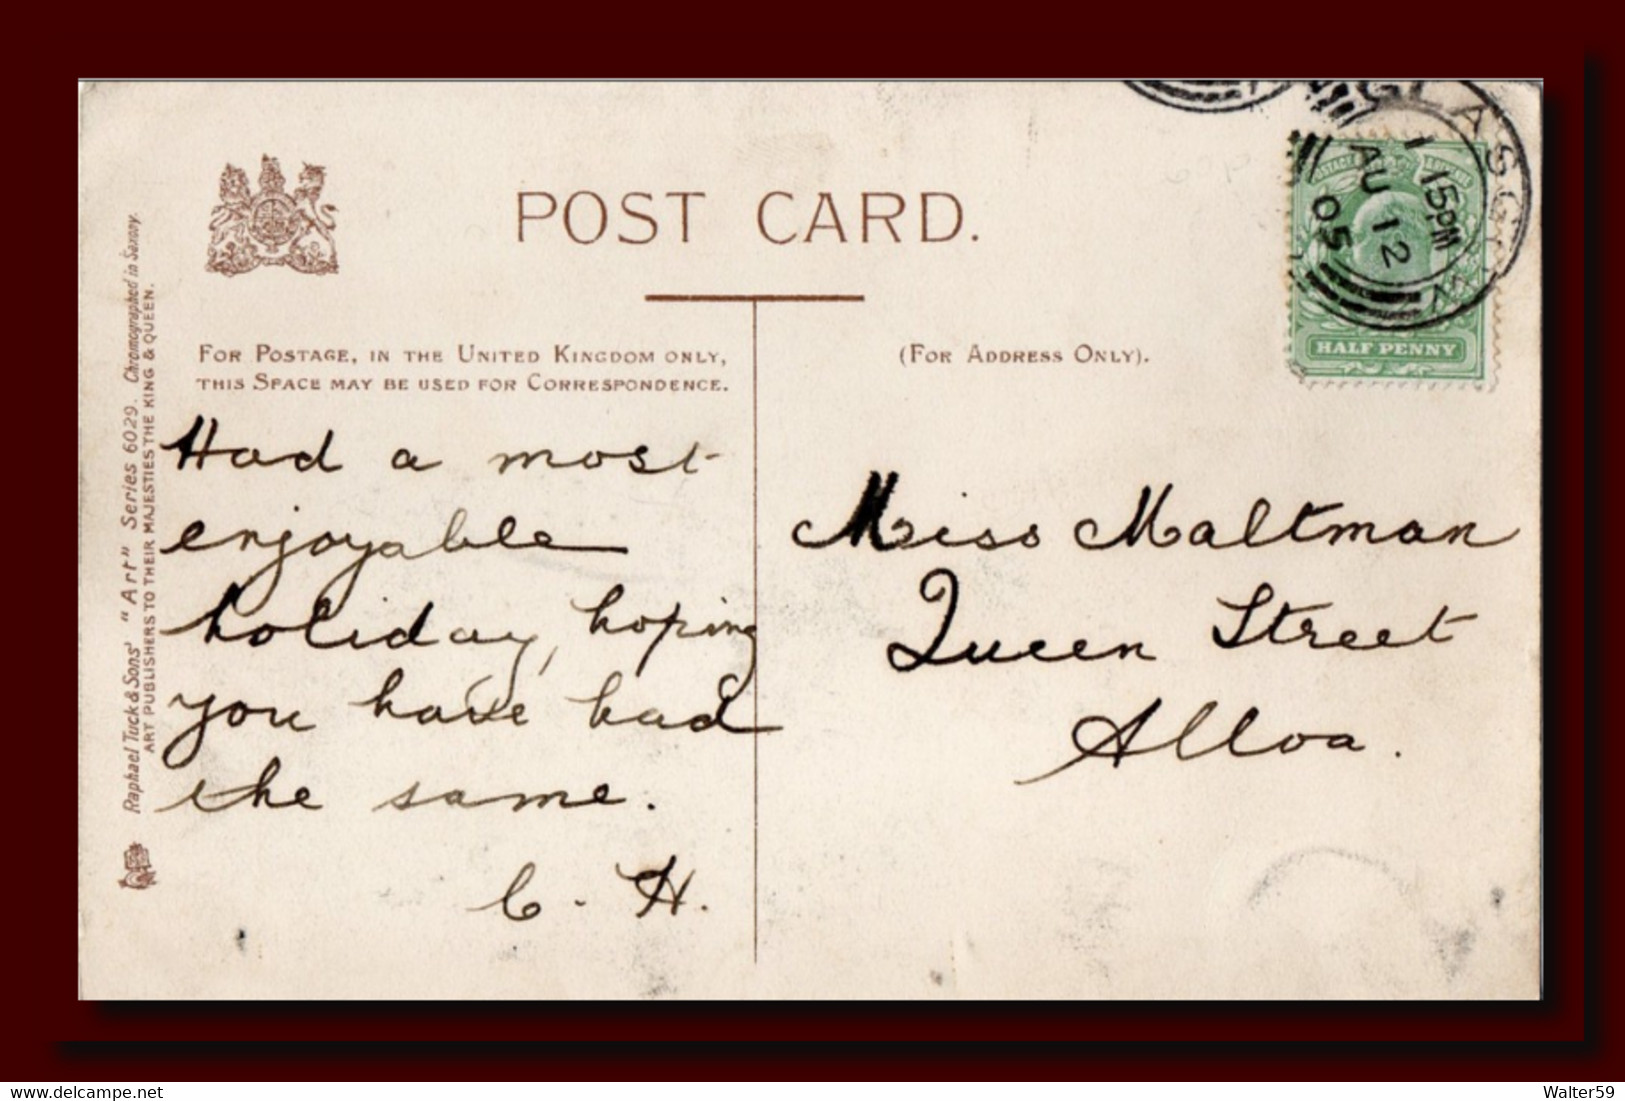 POST CARD.
FOR POSTAGE, IN THE UNITED KINGDOM ONLY,
THIS SPACE MAY BE USED FOR CORRESPONDENCE.
(FOR ADDRESS ONLY).
Raphael Tuck & Sons' "Art" Series 6029. Chromographed in Saxony.
ART PUBLISHERS TO THEIR MAJESTIES THE KING & QUEEN.
GLASGOW
1 15PM
AU 12
05
POSTAGE
HALF PENNY
Had a most
enjoyable
holiday, hoping
you have had
the same.
C. H.
Miss Maltman
Queen Street
Alloa.
delcampe.net
Walter59